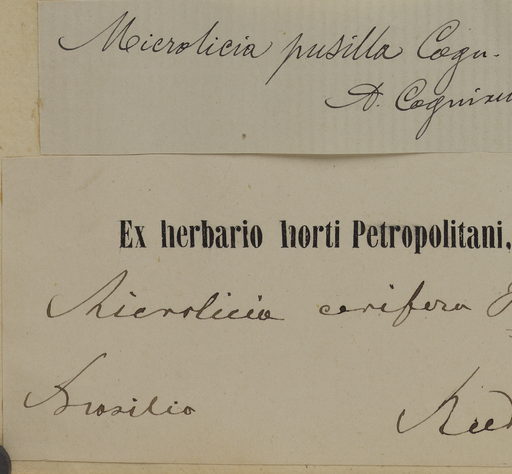 Microlicia pusilla Cogn.
A. Cogniau
Ex herbario horti Petropolitani,
Microlicia cerifera
Brasilia
Ried